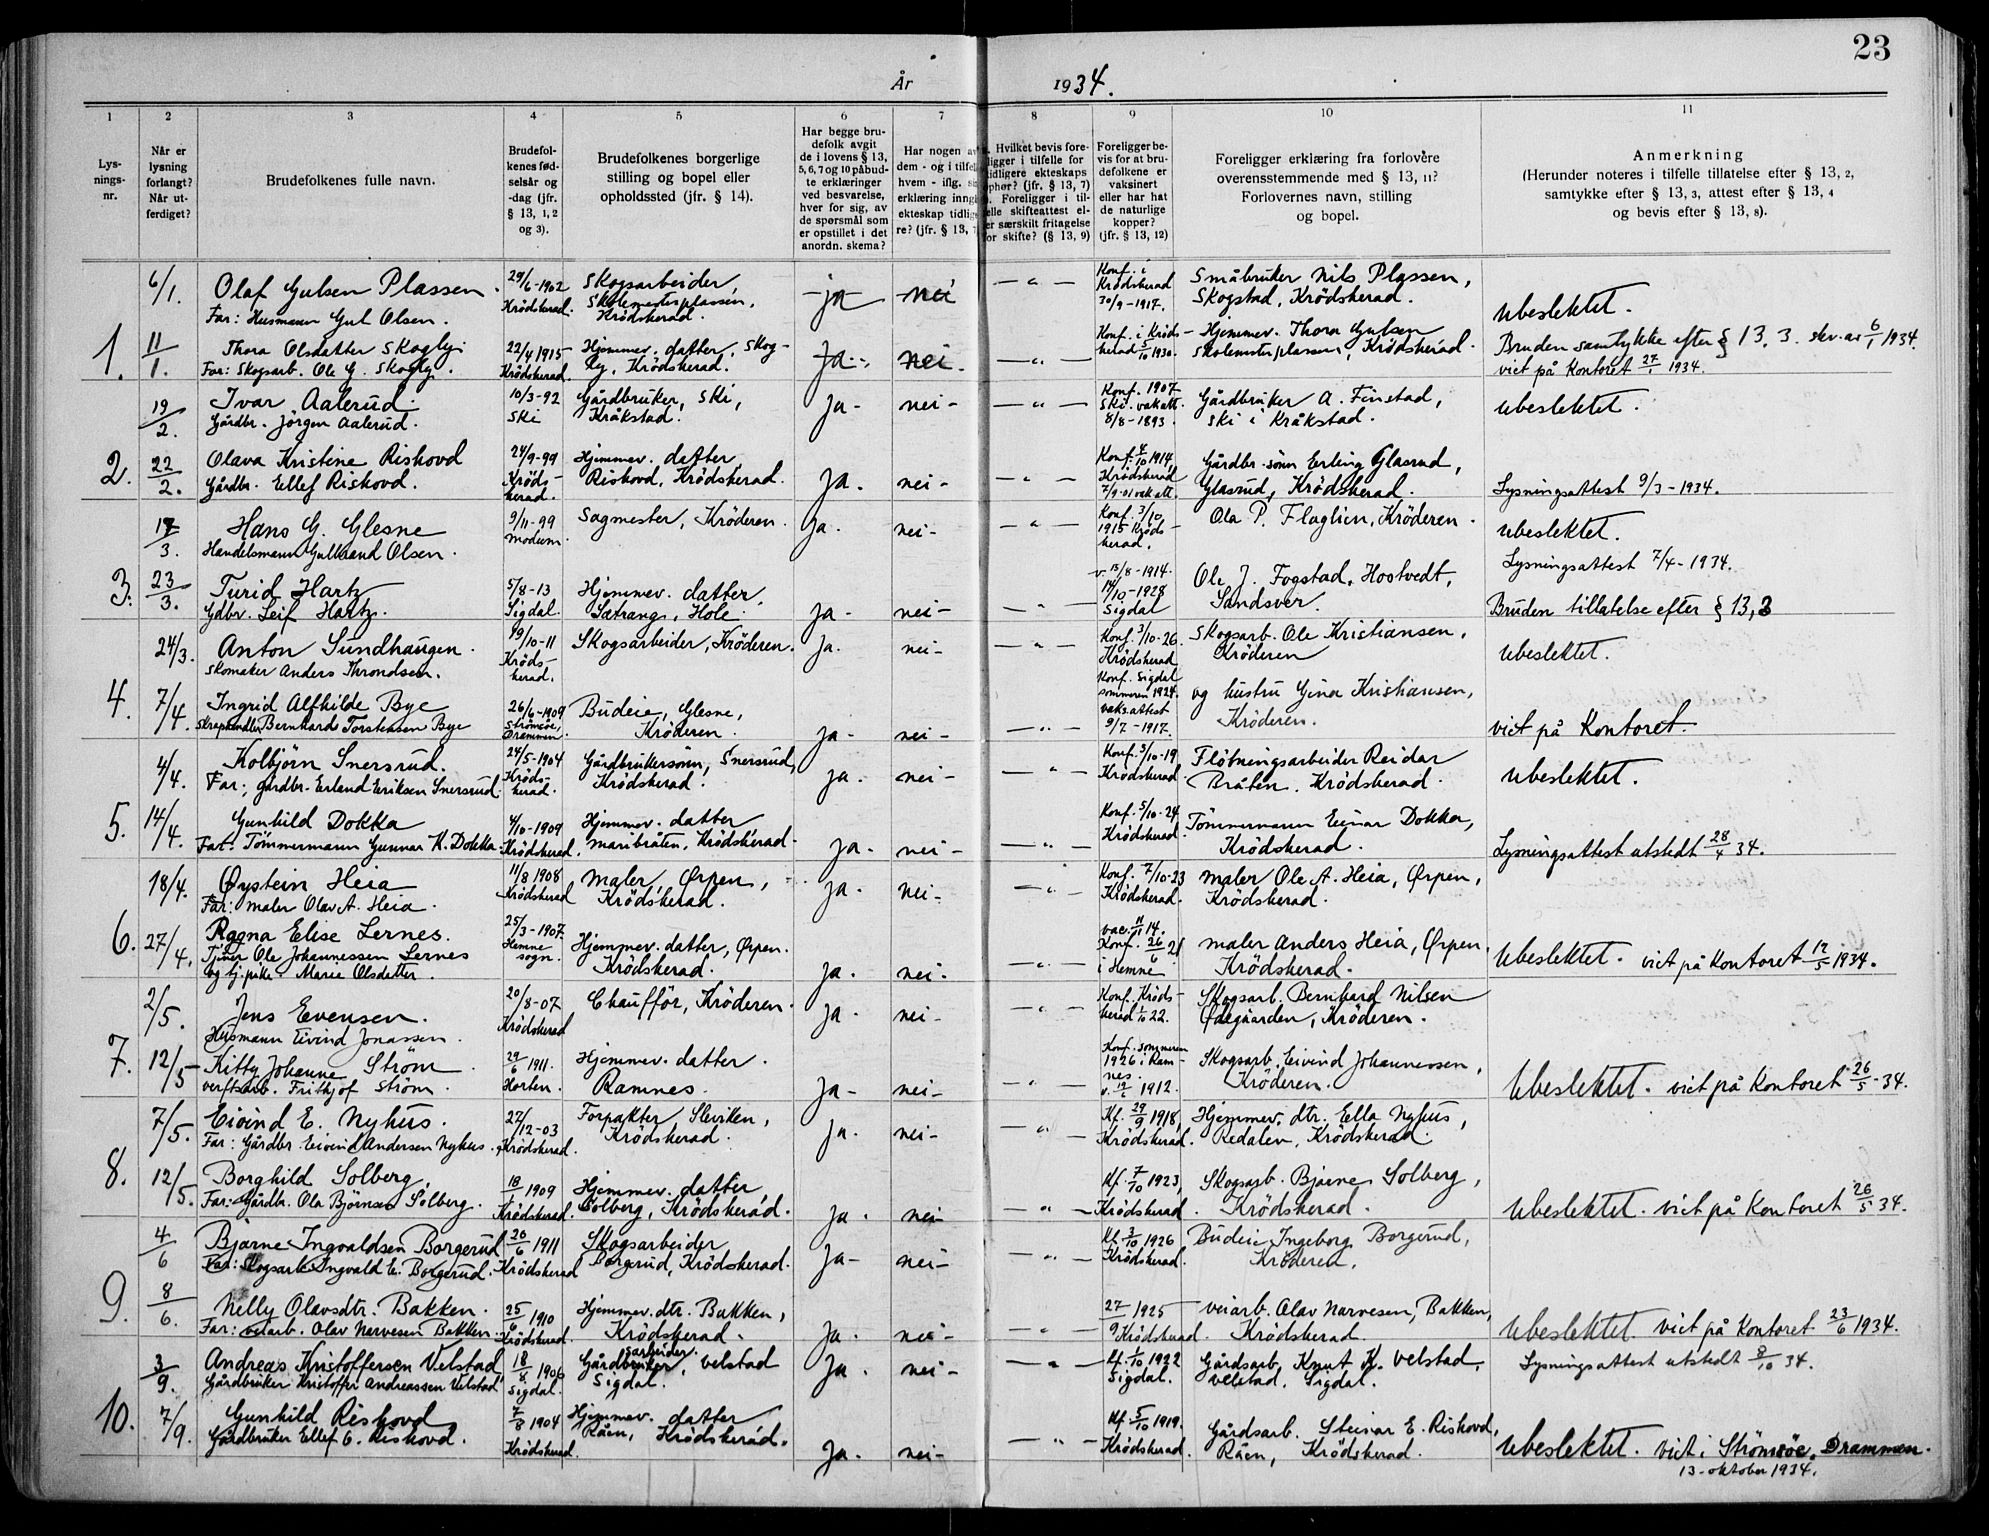 23
År 1934.
1 2 3 4 5 6 7 8 9 10 11
Lys-
nings-
nr.
Når er
lysning
forlangt?
Når ut-
ferdiget?
Brudefolkenes fulle navn.
Brudefol-
kenes fød-
selsår og
-dag (jfr.
§ 13, 1, 2
og 3).
Brudefolkenes borgerlige
stilling og bopel eller
opholdssted (jfr. § 14).
Har begge bru-
defolk avgit
de i lovens § 13,
5, 6, 7 og 10 påbud-
te erklæringer
ved besvarelse,
hver for sig, av
de spørsmål som
er opstillet i det
anordn. skema?
Har nogen av
dem - og i tilfelle
hvem - iflg. sin
erklæring inngått
ekteskap tidlige-
re? (jfr. § 13, 7)
Hvilket bevis fore-
ligger i tilfelle for
tidligere ekteskaps
ophør? (jfr. § 13, 7)
Foreligger i til-
felle skifteattest el-
er særskilt fritagelse
for skifte? (§ 13, 9)
Foreligger be-
vis for at bru-
defolkene er
vaksinert
eller har hat
de naturlige
kopper?
(jfr. § 13, 12)
Foreligger erklæring fra forlovere
overensstemmende med § 13, 11?
Forlovernes navn, stilling
og bopel.
Anmerkning
(Herunder noteres i tilfelle tillatelse efter § 13, 2,
samtykke efter § 13, 3, attest efter § 13, 4
og bevis efter § 13, 8).
6/1. Olaf Gulsen Plassen. 29/6-1902 Skogsarbeider, ja nei — " — Konf. i Småbruker Nils Plassen, Ubeslektet.
Far: Husmann Gul Olsen. Krödsherad. Skolemesterplassen, Krödsherad. Krödsherad 30/9-1917. Skogstad, Krödsherad.
1. 11/1. Thora Olsdatter Skogly. 22/4 1915 Hjemmev. datter, Skog- ja. nei. — " — Konf. i Kröds- Hjemmev. Thora Gulsen Bruden samtykke efter § 13. 3. skr. av 6/1 1934.
Far: Skogsarb. Ole G. Skogly. Krödsherad. ly, Krödsherad. herad 5/10 1930. Skolemesterplassen, Krödsherad. viet på Kontoret 27/1 1934.
19/2. Ivar Aalerud. 10/3-92 Gårdbruker, Ski, ja- nei- — " — Konf. 1907 Gårdbruker A. Finstad, Ubeslektet.
Gårdbr. Jörgen Aalerud. Ski Kråkstad. Ski. vak att. 8/8-1893. Ski i Kråkstad.
2. 22/2. Olava Kristine Riskovd 24/9-99 Hjemmev. datter ja. nei- — " — Konf. 4/10 1914, Gårdbr. sönn Erling Glasrud,
Gårdbr. Ellef Riskovd. Kröds-herad. Riskovd, Krödsherad. Krödsherad 7/9-01 vak att. Glasrud, Krödsherad. Lysningsattest 9/3-1934.
17/3. Hans G. Glesne 9/11-99 Sagmester, Kröderen. Ja. nei- — " — Konf. 3/10 Ola P. Flaglien, Kröderen. Ubeslektet.
Handelsmann Gulbrand Olsen. Modum. 1915 Kröds-herad. Lysningsattest 7/4-1934.
3. 23/3. Turid Hartz 5/8-13 Hjemmev. datter, ja- nei- — " — v. 13/8-1914. Ole J. Fogstad, Hostvedt,
Gdbr. Leif Hartz. Sigdal. Sætrang, Hole. 14/10-1928 Sigdal Sandsver. Bruden tillatelse efter § 13,2
24/3. Anton Sundhaugen. 19/10-11 Skogsarbeider, Kröderen. ja. nei- — " — Konf. 3/10-26 Skogsarb. Ole Kristiansen, Ubeslektet.
Skomaker Anders Throndsen. Kröds-herad. Krödsherad Kröderen
4. 7/4. Ingrid Alfhilde Bye 26/6-1909 Budeie, Glesne, ja- nei- — " — Konf. Sigdal sommeren 1924. og hustru Gina Kristiansen,
Bernhard Torstensen Bye Strömsöe, Drammen. Kröderen. vaks. attest 9/7-1917. Kröderen. viet på Kontoret.
4/4. Kolbjörn Snersrud. 24/5-1904 Gårdbrukersönn, Snersrud, ja. nei- — " — Konf. 5/10-19 Flötningsarbeider Reidar Ubeslektet.
Far; gårdbr. Erland Eriksen Snersrud. Kröds-herad. Krödsherad. Krödsherad. Bråten. Krödsherad.
5. 14/4. Gunhild Dokka 4/10-1909 Hjemmev. datter ja. nei- — " — Konf. 5/10-24 Tömmermann Einar Dokka,
Far. Tömmermann Gunnar K. Dokka. Krödsherad. Maribråten, Krödsherad. Krödsherad. Krödsherad. Lysningsattest utstedt 28/4 34.
18/4. Øystein Heia 11/8 1908 Maler, Ørpen, ja- nei- — " — Konf. 7/10-23 Maler Ole A. Heia, Ørpen,
Far: Maler Olav A. Heia. Krödsherad Krödsherad. Krödsherad. Krödsherad.
6. 27/4. Ragna Elise Lernes. 25/3-1907. Hjemmev. datter, Ørpen. ja. nei. — " — vac. 11 14. Maler Anders Heia, Ørpen, Ubeslektet. viet på Kontoret 12/5 1934.
Tjener Ole Johannessen Lernes Hemne sogn. Krödsherad. Konf. 26/6 21 i Hemne Krödsherad.
og tj.pike. Marie Olsdatter.
2/5. Jens Evensen. 20/8-07 Chaufför, Kröderen. ja. nei- — " — Konf. Kröds- Skogsarb. Bernhard Nilsen
Husmann Eivind Jonassen. Krödsherad herad 1/10 22. Ødegaarden, Kröderen.
7. 12/5 Kitty Johanne Ström 29/6 1911. Hjemmev. datter. ja- nei- — " — Konf. sommeren 1926 i Ram-nes. Skogsarb. Eivind Johannessen, Ubeslektet. viet på Kontoret 26/5-34.
verftsarb. Frithjof Ström. Horten. Ramnes. 1912. Kröderen.
7/5. Eivind E. Nyhus. 27/12-03 Forpakter Slevikен, ja. nei- — " — Kf. 29/9 1918, Hjemmev. dtr. Ella Nyhus,
Far: Gårdbr Eivind Andersen Nyhus. Krödsherad. Krödsherad. Krödsherad. Redalen, Krödsherad.
8. 12/5. Borghild Solberg. 18 1909 Hjemmev. datter ja. nei — " — Kf. 7/10 1923, Skogsarb. Bjarne Solberg,
Far: Gårdbr. Ola Björnsen Solberg. Krödsherad. Solberg, Krödsherad. Krödsherad. Krödsherad. Ubeslektet. viet på Kontoret 26/5 34.
4/6 Bjarne Ingvaldsen Borgerud 26/6 1911 Skogsarbeider ja- nei- — " — Kf. 3/10 1926 Budeie Ingeborg Borgerud,
Far: Skogsarb Ingvald E. Borgerud. Krödsherad Borgerud, Krödsherad. Krödsherad. Kröderen.
9. 8/6. Nelly Olavsdtr. Bakken. 25/6 1910 Hjemmev. dtr. Bakken, ja. nei- — " — 27/9 1925 veiarb. Olav Narvesen, Bakken,
Far: veiarb. Olav Narvesen Bakken. Krödsherad. Krödsherad. Krödsherad. Krödsherad. Ubeslektet viet på Kontoret 23/6 1934.
3/9. Andreas Kristoffersen Velstad 18/8 1906 Gårdbruker, arbeider. Velstad ja. nei- — " — Kf. 1/10 1922 Gårdsarb. Knut K. Velstad, Lysningsattest utstedt 8/10 34.
Gårdbruker Kristoffer Andreassen Velstad Sigdal. Sigdal. Sigdal. Velstad. Sigdal.
10. 7/9. Gunhild Riskovd 7/8 1904 Hjemmev. datter ja. nei- — " — Kf. 5/10 1919. Gårdsarb. Steinar E. Riskovd,
Gårdbruker Ellef G. Riskovd. Krödsherad. Råen, Krödsherad. Krödsherad. Råen, Krödsherad. Ubeslektet. viet i Strömsöe, Drammen.
13-oktober 1934.